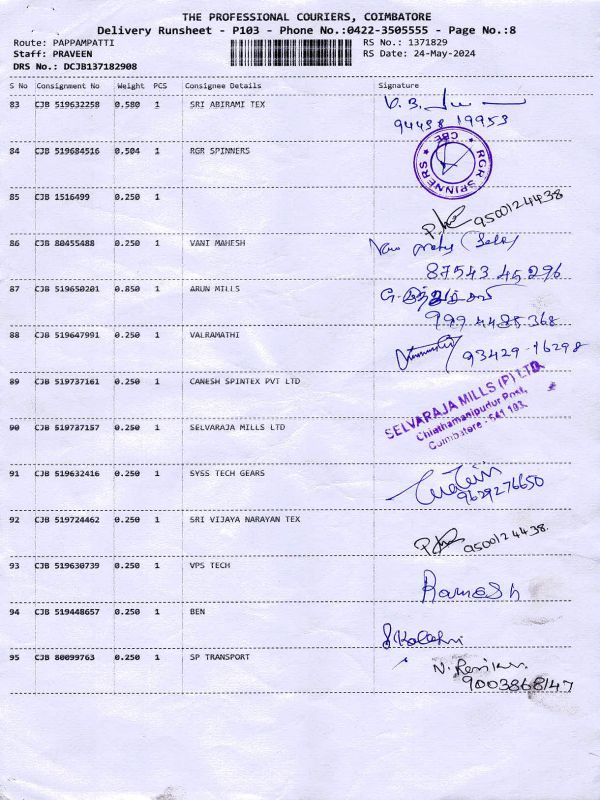 THE PROFESSIONAL COURIERS, COIMBATORE
Delivery Runsheet - P103 - Phone No.:0422-3505555 - Page No.:8
Route: PAPPAMPATTI RS No.: 1371829
Staff: PRAVEEN RS Date: 24-May-2024
DRS No.: DCJB137182908
S No Consignment No Weight PCS Consignee Details Signature
83 CJB 519632258 0.580 1 SRI ABIRAMI TEX
94438 19953
84 CJB 519684516 0.504 1 RGR SPINNERS
RGR SPINNERS ★ CBE ★
85 CJB 1516499 0.250 1
9500124438
86 CJB 80455488 0.250 1 VANI MAHESH
87543 45296
87 CJB 519650201 0.850 1 ARUN MILLS
999 4485 368
88 CJB 519647991 0.250 1 VALRAMATHI
93429-16298
89 CJB 519737161 0.250 1 CANESH SPINTEX PVT LTD
SELVARAJA MILLS (P) LTD.
Chinthamanipudur Post,
Coimbatore - 641 103.
90 CJB 519737157 0.250 1 SELVARAJA MILLS LTD
91 CJB 519632416 0.250 1 SYSS TECH GEARS
9629276650
92 CJB 519724462 0.250 1 SRI VIJAYA NARAYAN TEX
9500124438.
93 CJB 519630739 0.250 1 VPS TECH
Ramesh
94 CJB 519448657 0.250 1 BEN
95 CJB 80099763 0.250 1 SP TRANSPORT
9003868147